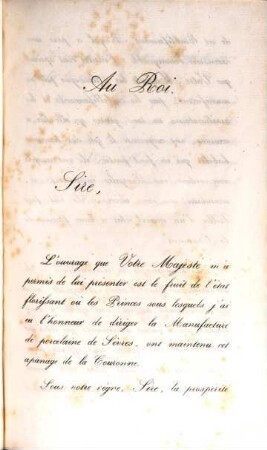 Au Roi.
Sire,
L'ouvrage que Votre Majesté m'a
permis de lui présenter est le fruit de l'état
florissant où les Princes sous lesquels j'ai
eu l'honneur de diriger la Manufacture
de porcelaine de Sèvres, ont maintenu cet
apanage de la Couronne.
Sous votre règne, Sire, la prospérité